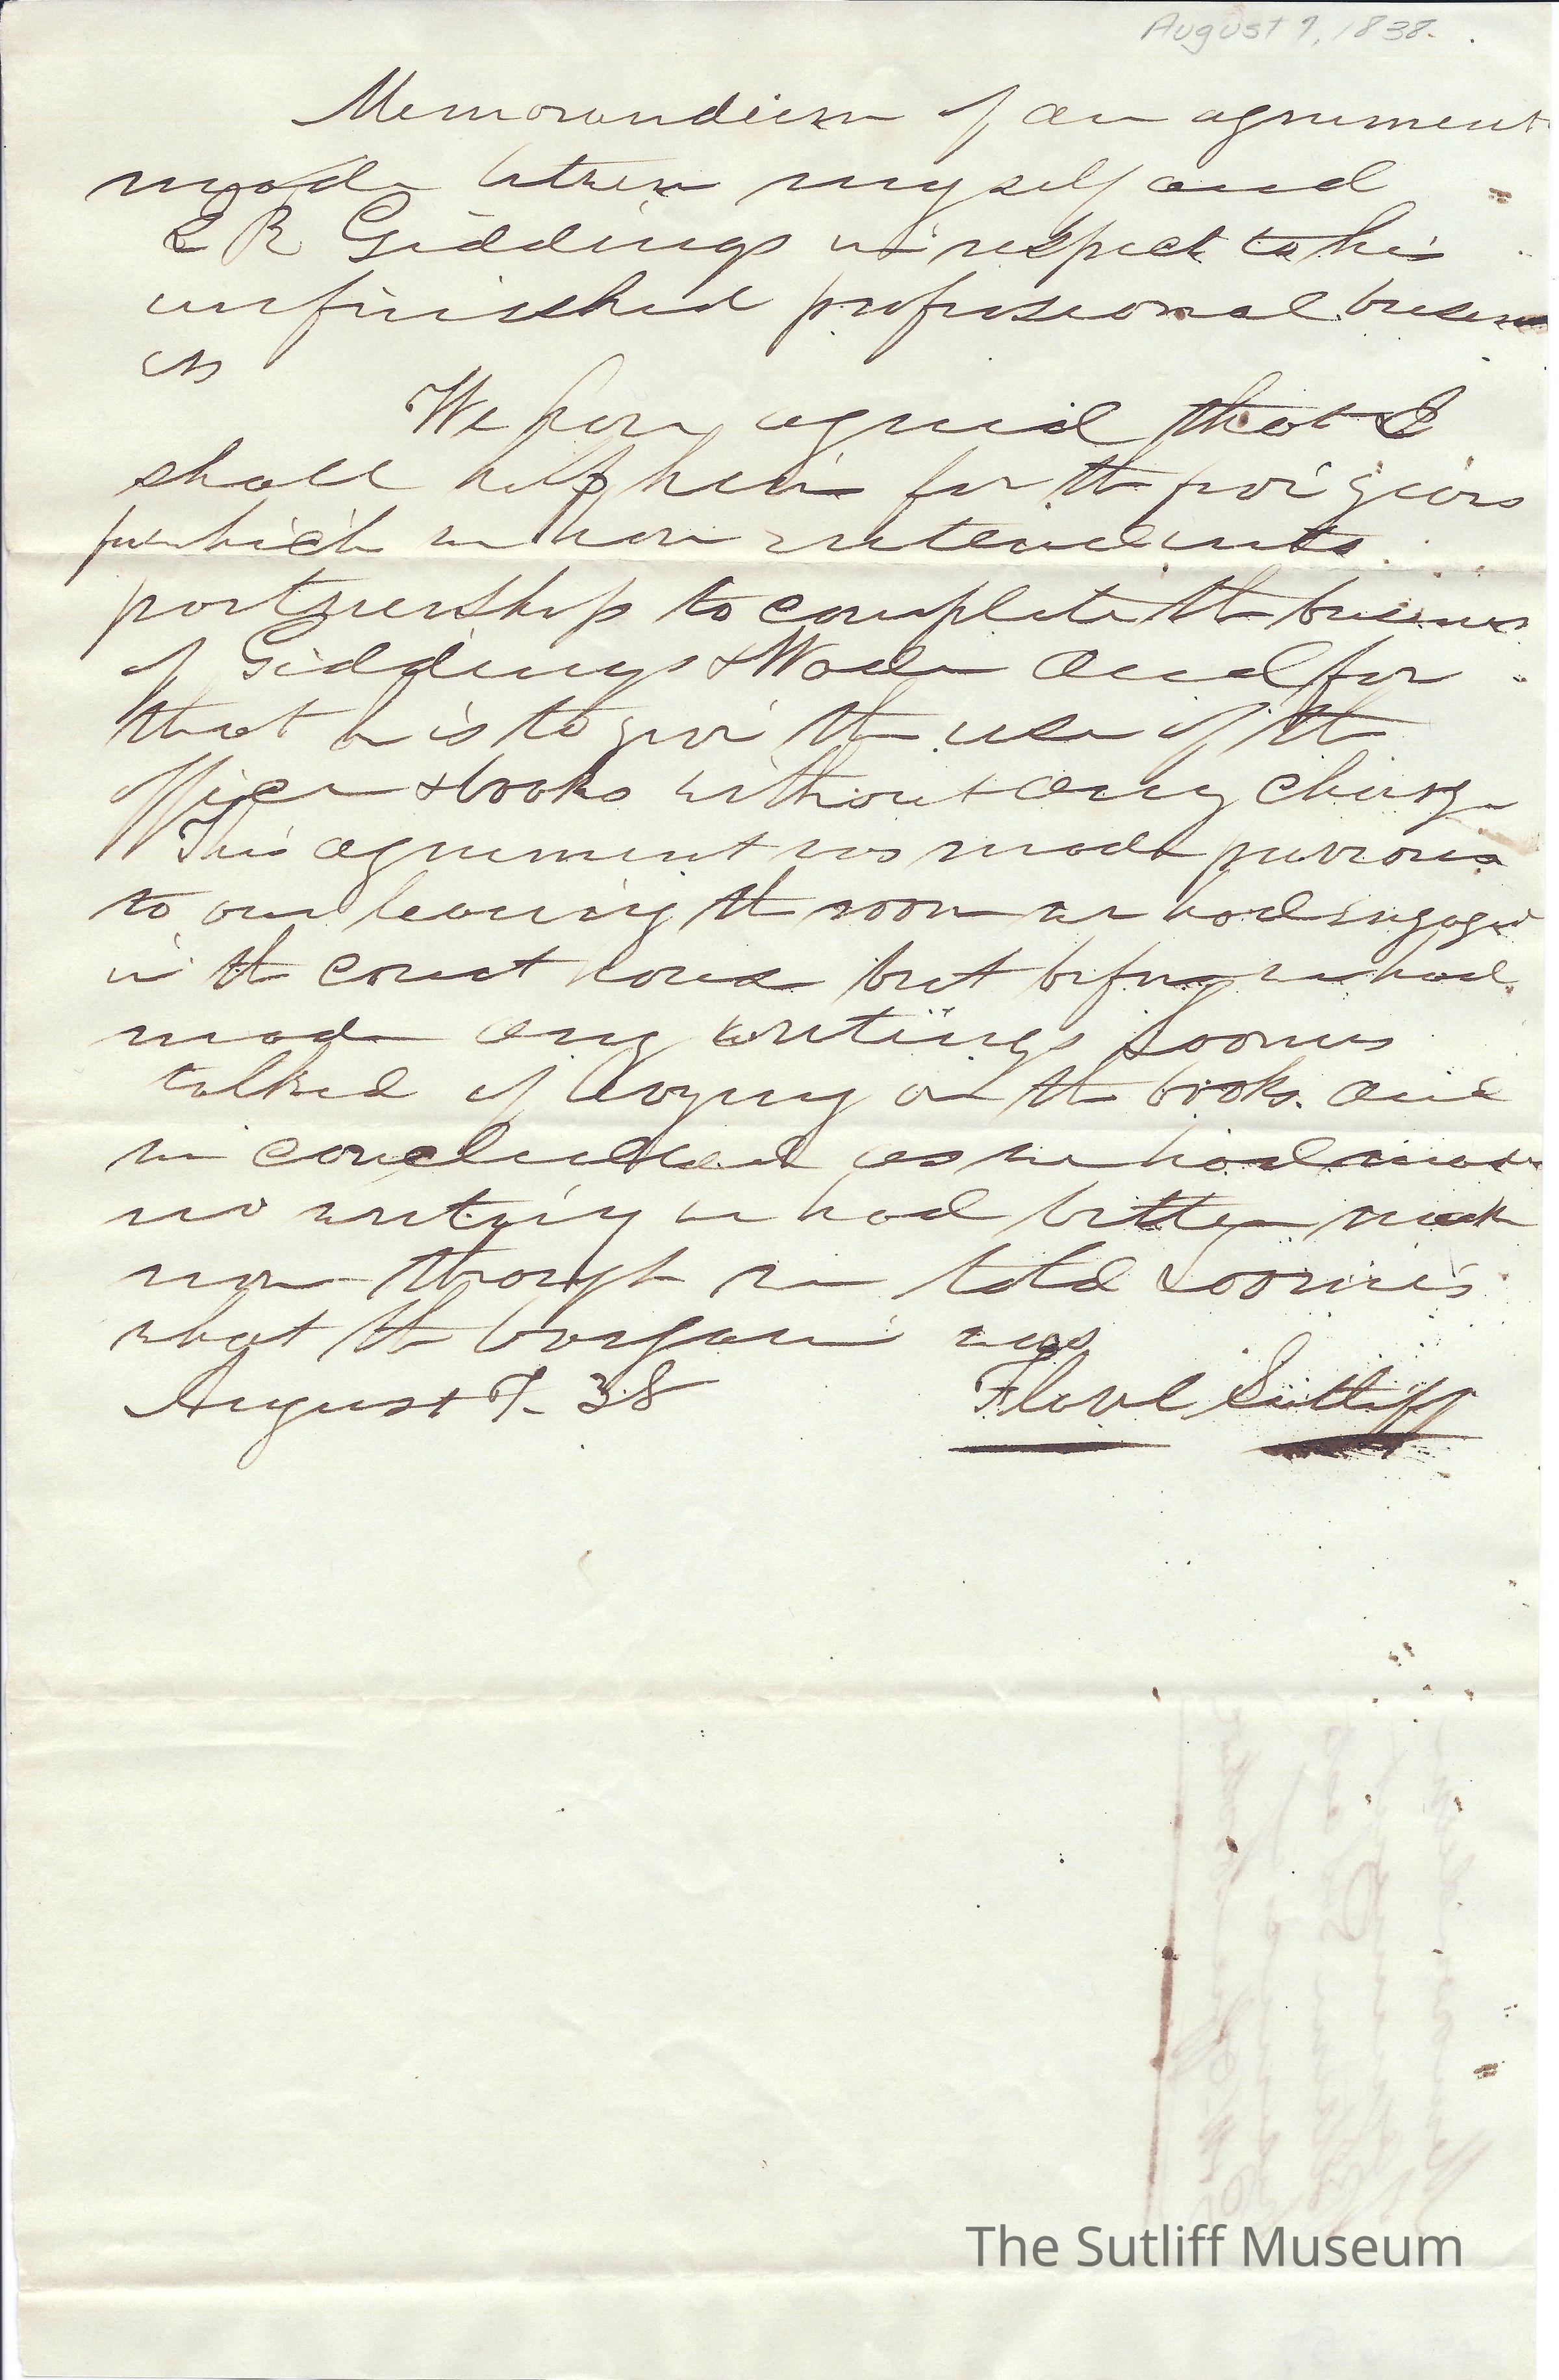 August 7, 1838.
Memorandum of an agreement
made between myself and
J R Giddings in respect to his
unfinished professional busin
ess
We have agreed that I
shall help him for the five years
for which we have entered into
partnership to complete the business
of Giddings & Wade and for
that he is to give the use of the
office & books without any charge
This agreement was made previous
to our leaving the room we had engaged
in the court house but before we had
made any writings Loomis
talked of levying on the books and
we concluded as we had made
no writing we had better make
none though we told Loomis
what the bargain was
August 7- 38 Flavel Sutliff
The Sutliff Museum